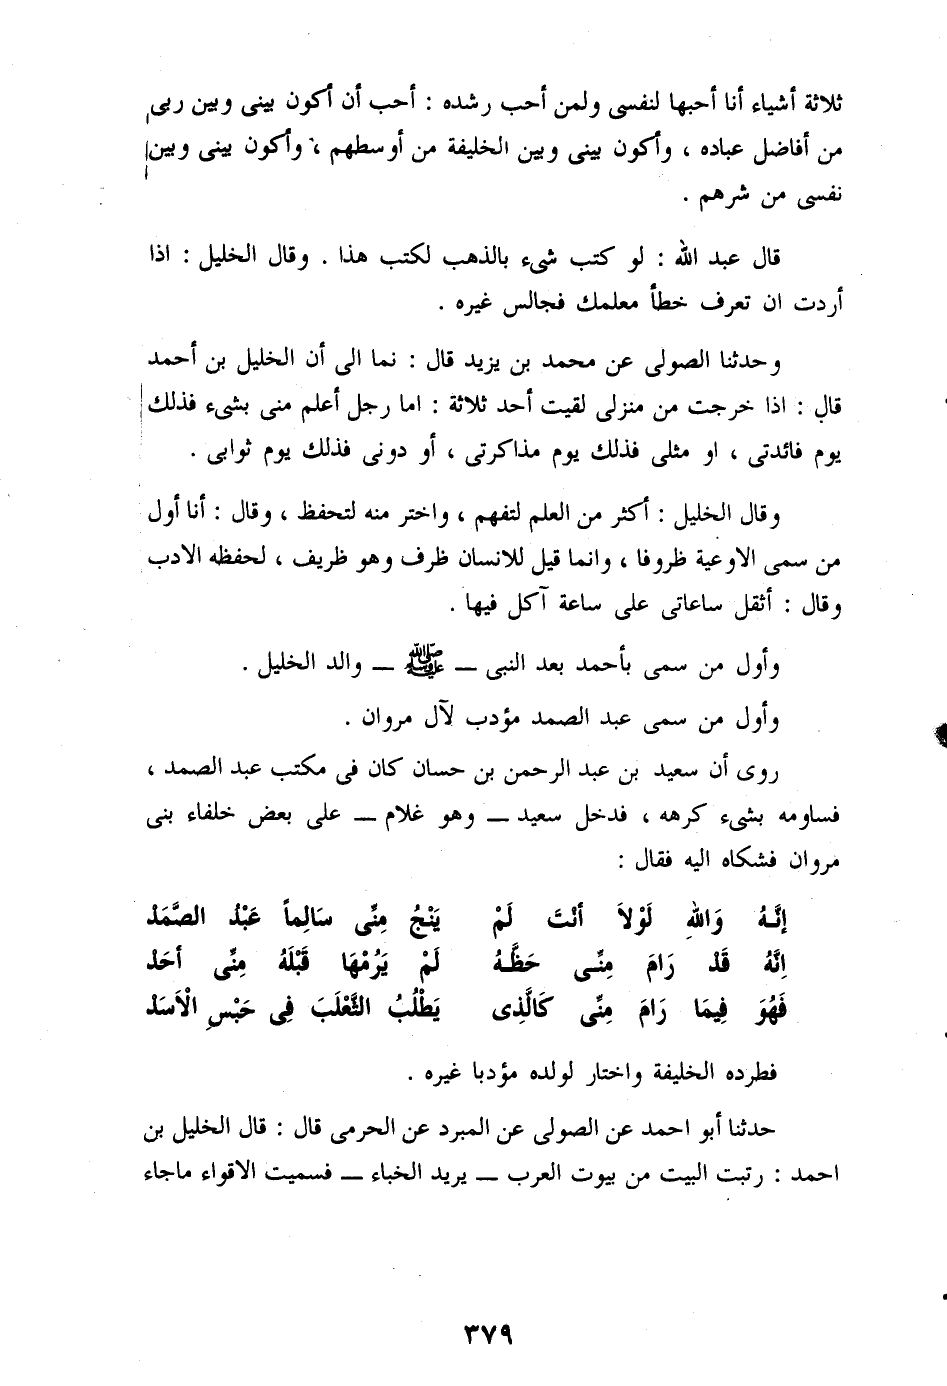 ثلاثة أشياء أنا أحبها لنفسى ولمن أحب رشده : أحب أن أكون بينى وبين ربى
من أفاضل عباده ، وأكون بينى وبين الخليفة من أوسطهم ، وأكون بينى وبين
نفسى من شرهم .
قال عبد الله : لو كتب شىء بالذهب لكتب هذا . وقال الخليل : اذا
أردت ان تعرف خطأ معلمك فجالس غيره .
وحدثنا الصولى عن محمد بن يزيد قال : نما الى أن الخليل بن أحمد
قال : اذا خرجت من منزلى لقيت أحد ثلاثة : اما رجل أعلم منى بشىء فذلك
يوم فائدتى ، او مثلى فذلك يوم مذاكرتى ، أو دونى فذلك يوم ثوابى .
وقال الخليل : أكثر من العلم لتفهم ، واختر منه لتحفظ ، وقال : أنا أول
من سمى الاوعية ظروفا ، وانما قيل للانسان ظرف وهو ظريف ، لحفظه الادب
وقال : أثقل ساعاتى على ساعة آكل فيها .
وأول من سمى بأحمد بعد النبى ــ ﷺ ــ والد الخليل .
وأول من سمى عبد الصمد مؤدب لآل مروان .
روى أن سعيد بن عبد الرحمن بن حسان كان فى مكتب عبد الصمد ،
فساومه بشىء كرهه ، فدخل سعيد ــ وهو غلام ــ على بعض خلفاء بنى
مروان فشكاه اليه فقال :
إنَّهُ وَاللهِ لَوْلاَ أنْتَ لَمْ يَنْجُ مِنِّى سَالِماً عَبْدُ الصَّمَدْ
اِنَّهُ قَدْ رَامَ مِنِّى حَظَّهُ لَمْ يَرُمْهَا قَبْلَهُ مِنِّى أحَدْ
فَهُوَ فِيمَا رَامَ مِنِّى كَالَّذِى يَطْلُبُ الثَّعْلَبَ فِى حَبْسِ الْأَسَدْ
فطرده الخليفة واختار لولده مؤدبا غيره .
حدثنا أبو احمد عن الصولى عن المبرد عن الحرمى قال : قال الخليل بن
احمد : رتبت البيت من بيوت العرب ــ يريد الخباء ــ فسميت الاقواء ماجاء
٣٧٩